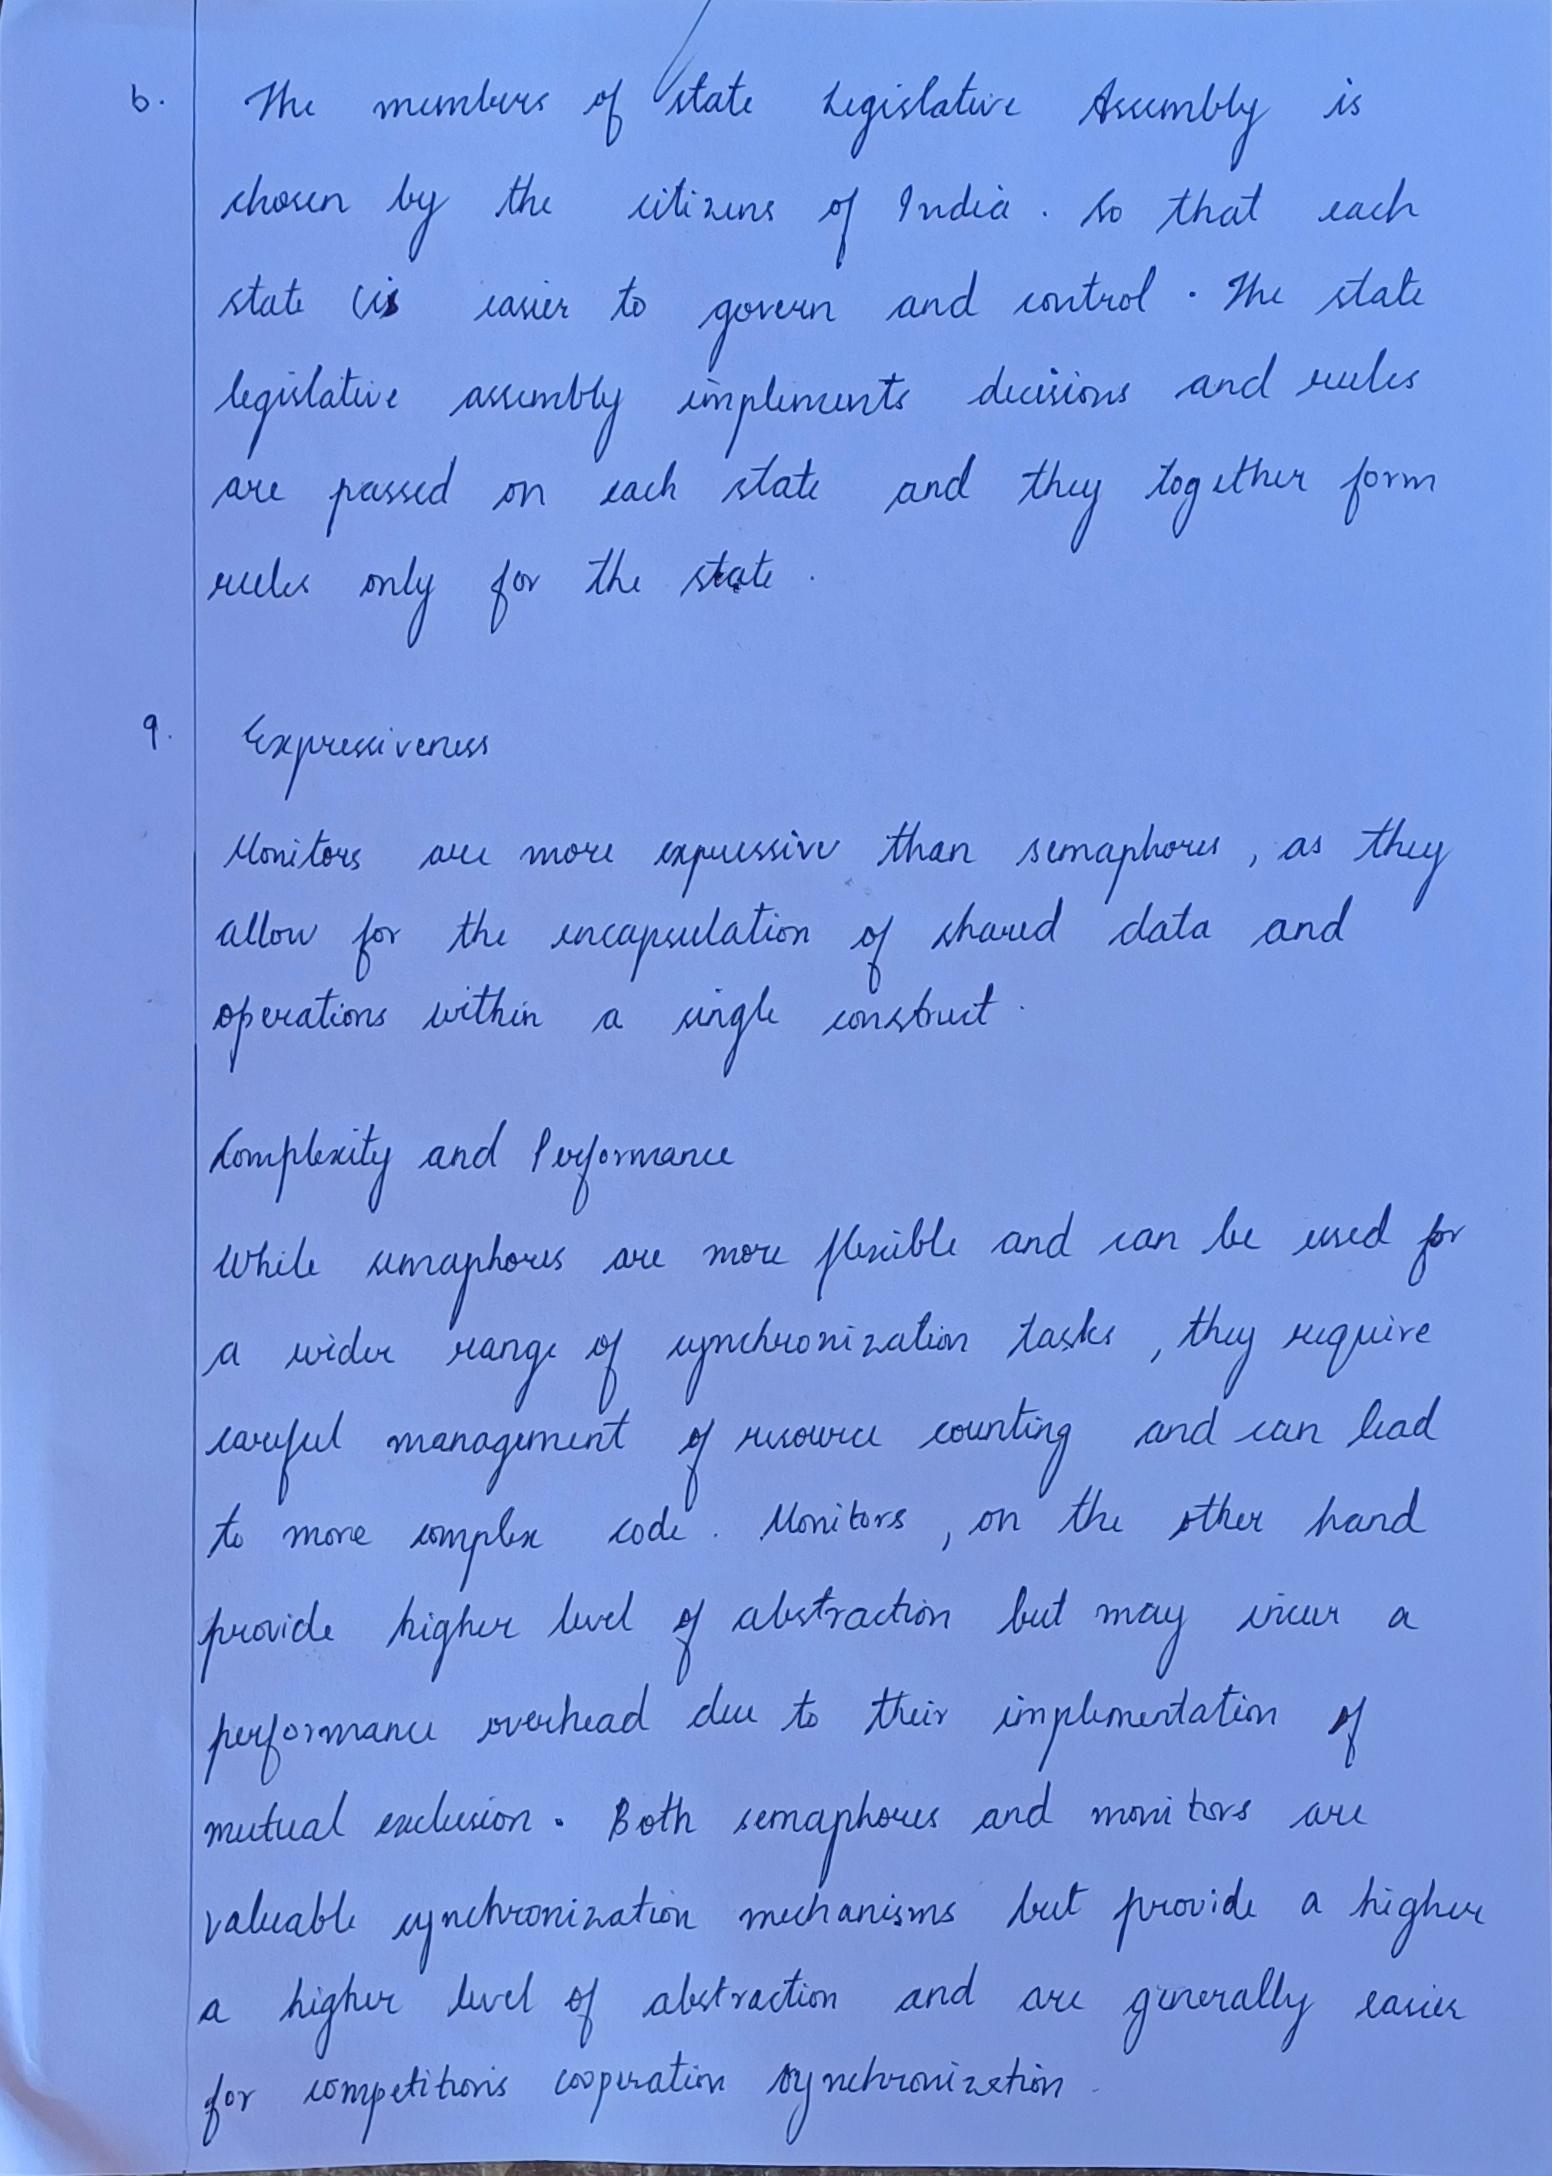 6. The members of state Legislative Assembly is
chosen by the citizens of India. So that each
state is easier to govern and control. The state
legislative assembly impliments decisions and rules
are passed on each state and they together form
rules only for the state.
9. Expressiveness
Monitors are more expressive than semaphores, as they
allow for the encapsulation of shared data and
operations within a single construct.
Complexity and Performance
While semaphores are more flexible and can be used for
a wider range of synchronization tasks, they require
careful management of resource counting and can lead
to more complex code. Monitors, on the other hand
provide higher level of abstraction but may incur a
performance overhead due to their implementation of
mutual exclusion. Both semaphores and monitors are
valuable synchronization mechanisms but provide a higher
a higher level of abstraction and are generally easier
for competitions cooperation synchronization.